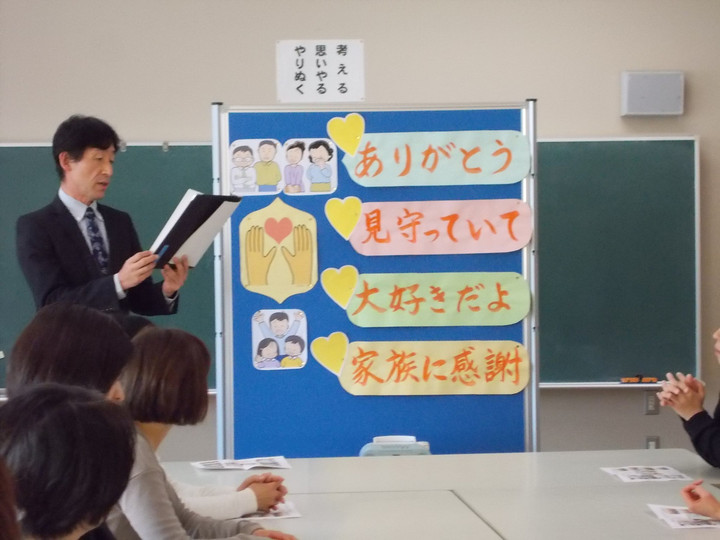 考える
思いやる
やりぬく
ありがとう
見守っていて
大好きだよ
家族に感謝